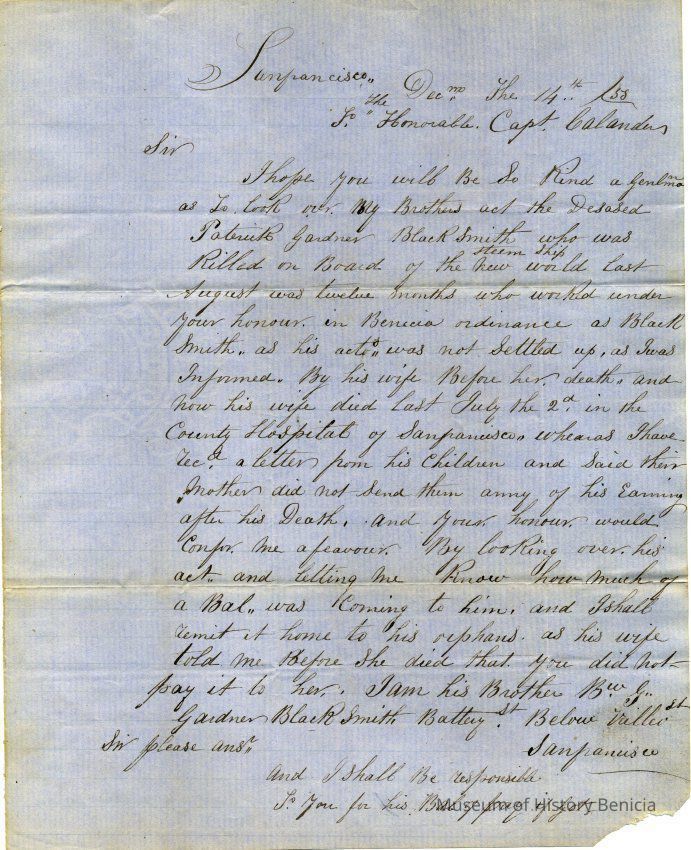 Sanfrancisco,, Decm. The 14th /58
To The Honorable. Capt. Calander
Sir
I hope You will Be So Kind a Genlmn
as To look over My Brothers act the Desased
Paterick Gardner Black Smith who was
steem Ship
Killed on Board of the New world last
August was twelve months who worked under
Your honour. in Benicia ordinance as Black
Smith,, as his acts,, was not Settled up, as Iwas
Informed. By his wife Before her. death,, and
now his wife died last July the 2d. in the
County Hospital of Sanfrancisco,, whearas I have
recd. a letter from his Children and Said their
Mother did not Send them anny of his Earning
after his Death,. and Your. honour. would
Confor. me a feavour. By looking over. his
act. and letting me Know how much of
a Bal,, was Coming to him. and Ishall
remit it home to his orphans. as his wife
told me Before She died that. You did not
pay it to her. I am his Brother
Gardner Black Smith Battery St. Below Vallei St
Sir please ansr. Sanfrancisco
And I shall Be responsible
To You for his
Museum of History Benicia